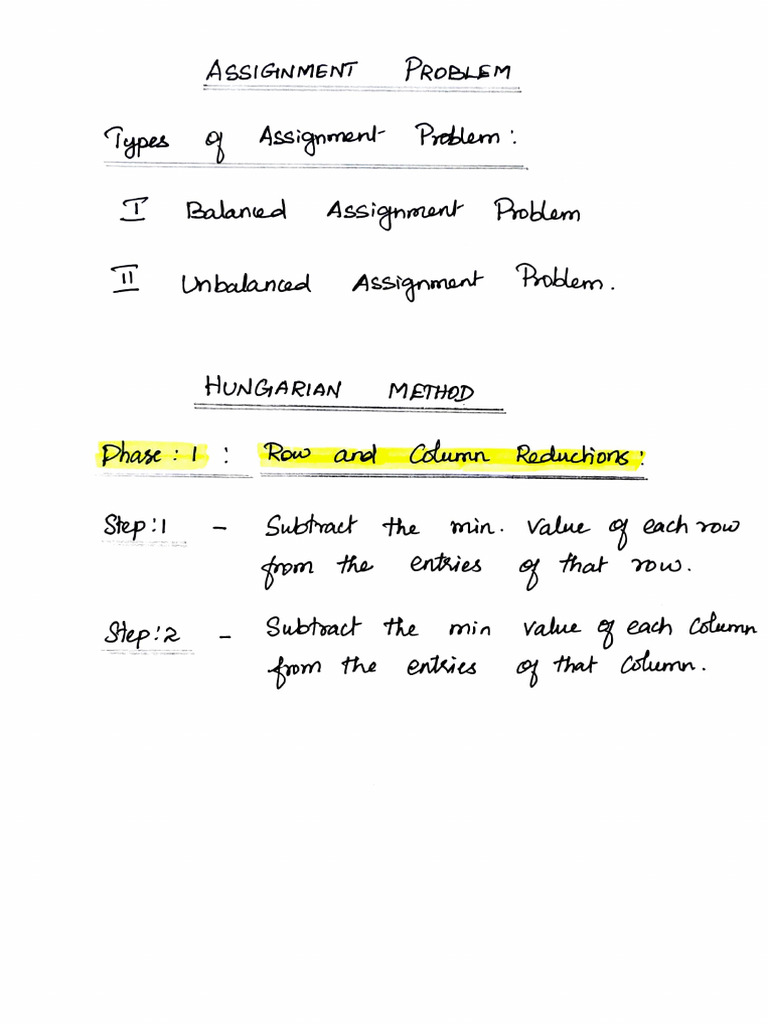 ASSIGNMENT PROBLEM
Types of Assignment Problem:
I Balanced Assignment Problem
II Unbalanced Assignment Problem.
HUNGARIAN METHOD
Phase : 1 : Row and Column Reductions:
Step:1 - Subtract the min. value of each row
from the entries of that row.
Step:2 - Subtract the min value of each column
from the entries of that column.